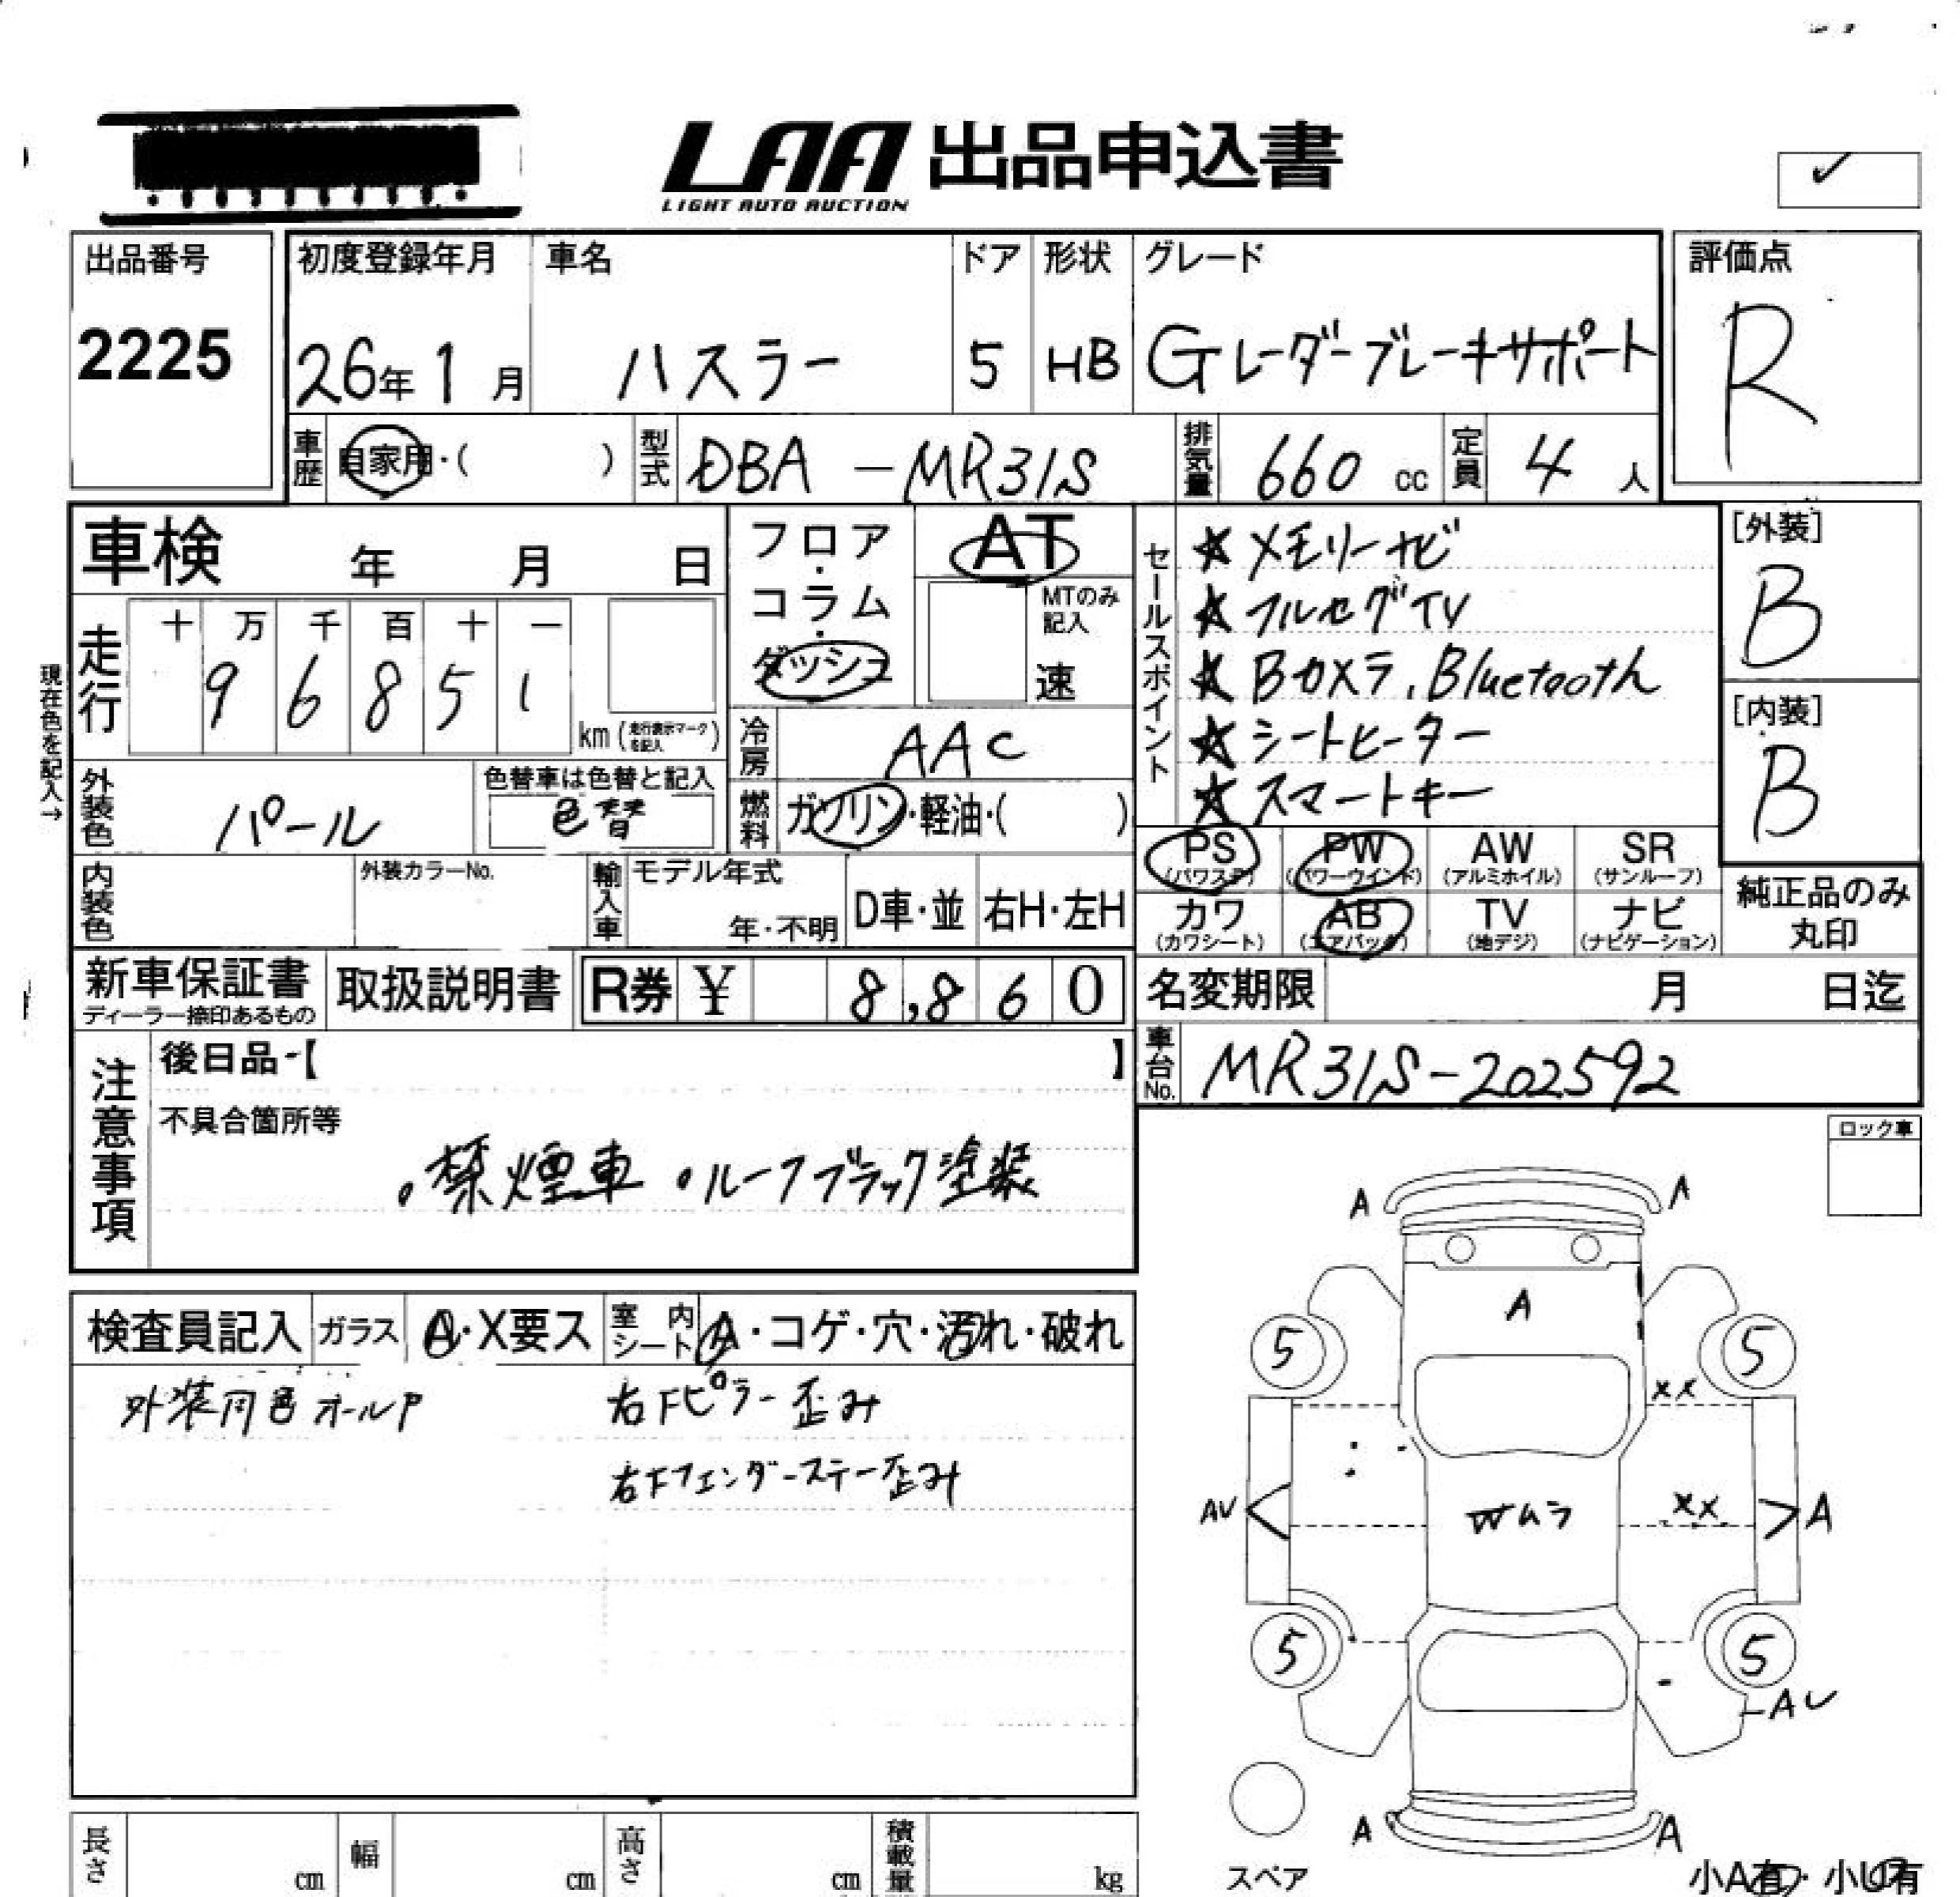 LAA 出品申込書
LIGHT AUTO AUCTION
✓
出品番号
2225
初度登録年月
26年 1月
車名
ハスラー
ドア
5
形状
HB
グレード
Gレーダーブレーキサポート
評価点
R
車歴
自家用・( )
型式
DBA-MR31S
排気量
660 cc
定員
4 人
車検 年 月 日
フロア・コラム・ダッシュ
AT
MTのみ記入
速
セールスポイント
★メモリーナビ
★フルセグTV
★Bカメラ、Bluetooth
★シートヒーター
★スマートキー
[外装]
B
[内装]
B
現在色を記入→
走行
十 万 千 百 十 一
9 6 8 5 1
km (走行表示マークを記入)
冷房
AAC
燃料
ガソリン・軽油・( )
外装色
パール
色替車は色替と記入
色替
内装色
外装カラーNo.
輸入車
モデル年式
年・不明
D車・並
右H・左H
PS (パワステ)
PW (パワーウインド)
AW (アルミホイル)
SR (サンルーフ)
カワ (カワシート)
AB (エアバック)
TV (地デジ)
ナビ (ナビゲーション)
純正品のみ
丸印
新車保証書
ディーラー捺印あるもの
取扱説明書
R券 ¥ 8,860
名変期限 月 日迄
車台No.
MR31S-202592
注意事項
後日品-【 】
不具合箇所等
・禁煙車 ・ルーフブラック塗装
ロック車
検査員記入
ガラス
A・X要ス
室内シート
A・コゲ・穴・汚れ・破れ
外装同色オールP
右Fピラー歪み
右Fフェンダーステー歪み
A A
A
5 5
XX
AV
XX
A
5 5
AU
A A
スペア
小A有・小U有
長さ cm
幅 cm
高さ cm
積載量 kg